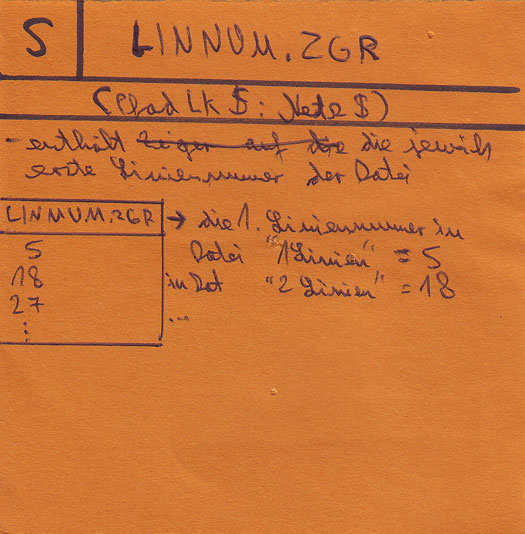 S LINNUM.ZGR
(Pfad Lk $ : Nete $)
- enthält Zeiger auf die die jeweils
erste Liniennummer der Datei
LINNUM.ZGR → die 1. Liniennummer in
5 Datei "1Linien" = 5
18 in Dat "2 Linien" = 18
27 ...
: